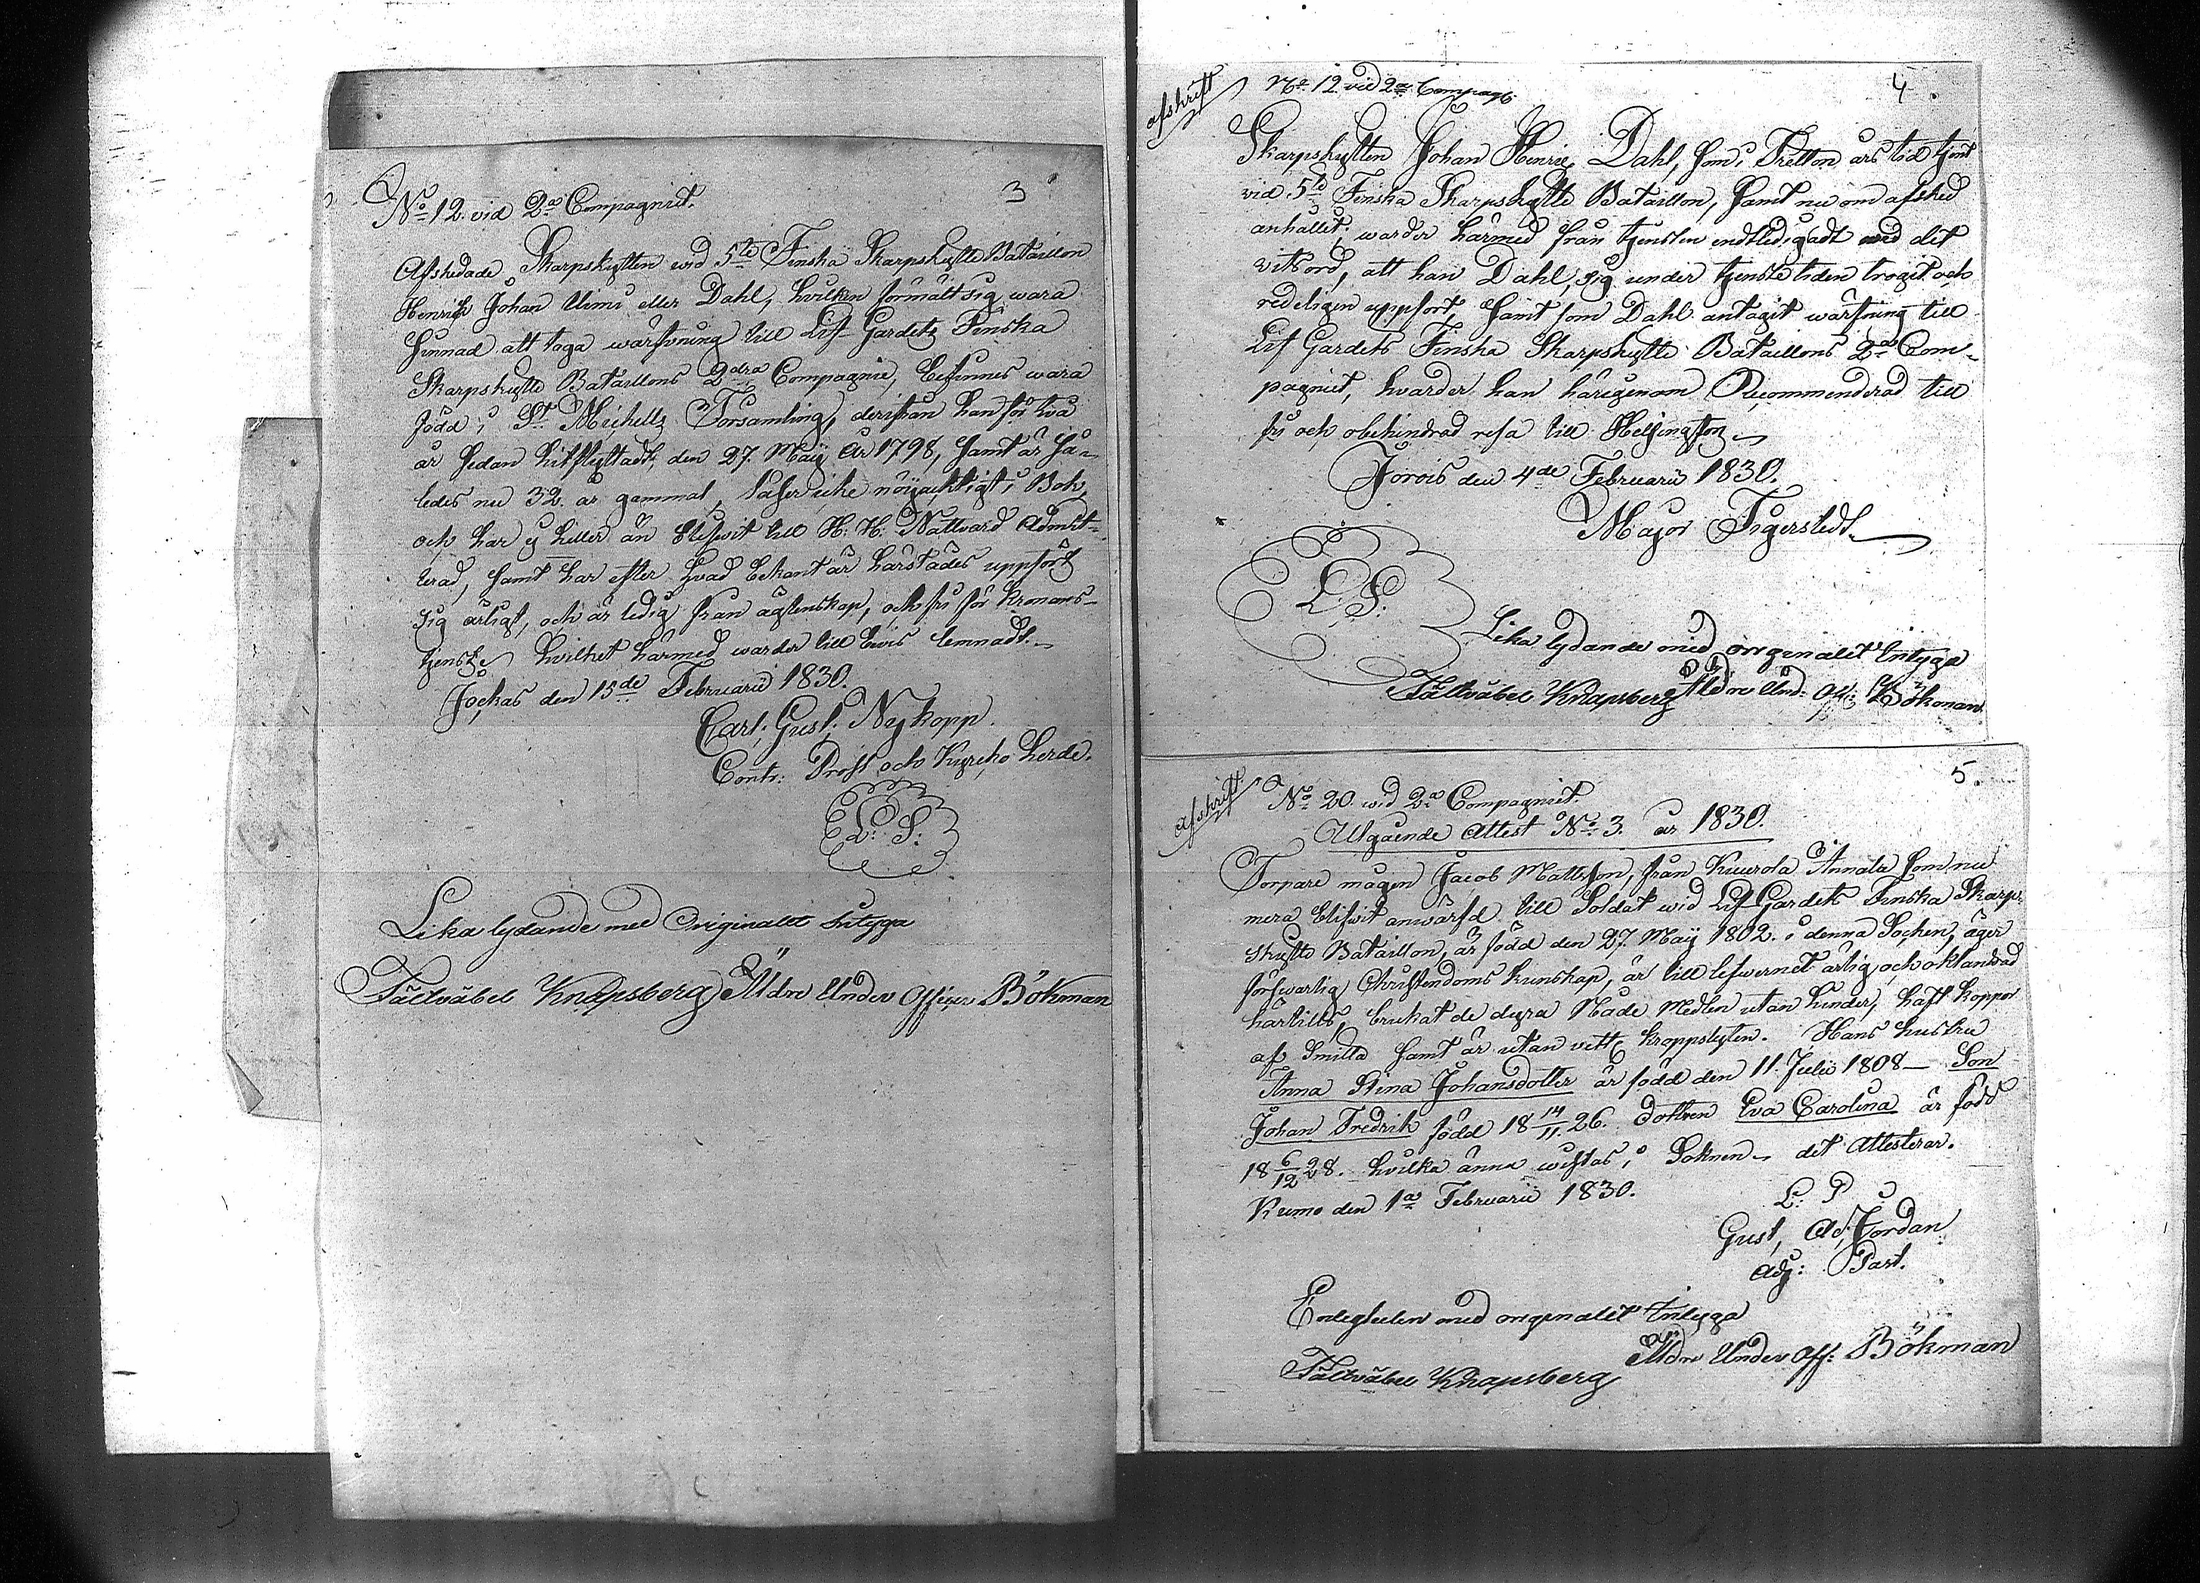 3
No 12. vid 2a Compagniet.
Afskedade Skarpskytten wid 5te Finska Skarpskytte Bataillon
Henrich Johan Climi eller Dahl, hvilken förmält sig wara
sinnad att taga wärfvning till Lif Gardets Finska
Skarpskytte Bataillons 2dra Compagnie, befinnes wara
född i St Michells Församling, derifrån han för två
år sedan hitflyttadt, den 27. Maij År 1798, samt är så-
ledes nu 32. år gammal, läser icke nöijachtigt i Bok,
och har ej heller än blifwit till H. H. Nattward Admit-
terad, samt har efter hvad bekant är härstädes uppfört
sig ärligt, och är ledig från ägtenskap, och fri för Kronans-
tjenst, hvilket härmed warder till bevis lemnadt.
Jockas den 15de Februarii 1830.
Carl. Gust. Nykopp.
Contr: Prost och Kyrcko herde.
L. S.
Lika lydande med Originalet Intyga
Fältväbel Knapsberg Äldre Under Officer Bökman
4
afskrift
No 12 vid 2a Compagn
Skarpskytten Johan Henric Dahl, som i Tretton års tid tjent
vid 5te Finska Skarpskytte Bataillon, samt nu om afsked
anhållit; warder härmed från tjensten entledigadt med det
vitsord, att han Dahl, sig under tjenste tiden trogit och
redeligen uppfört, samt som Dahl antagit wärfning till
Lif Gardets Finska Skarpskytte Bataillons 2a Com-
pagniet, hvarder han härigenom Recommenderad till
fri och obehindrad resa till Helsingfors
Jorois den 4de Februarii 1830.
Major Tigerstedt.
L. S.
Lika lydande med orgenalet Intyga
Fältväbel Knapsberg Äldre Und: Off: Bökman
5.
afskrift
No 20. wid 2a Compagniet.
Utgående Attest No 3. år 1830.
Torpare mågen Jacob Mattsson, från Kuurola Annala som nu
mera blifwit anwärfd till Soldat wid Lif Gardets Finska Skarp-
skytte Bataillon, är född den 27. Maij 1802. i denna Sochen, äger
förswarlig Christendoms kunskap, är till lefwernet ärlig och oklandrad
härtills, brukat de dyra Nåde Medlen utan hinder, haft koppor
af Smitta samt är utan vett kroppslyten. Hans hustru
Anna Stina Johansdotter är född den 11. Julii 1808 — Son
Johan Fredrik född 18 14/11 26. Dottren Eva Carolina är född
18 6/12 28. hvilka änna wistas i Soknen det Attesterar.
Kumo den 1a Februarii 1830.
L. P
Gust, Ad, Jordan
Adj: Past.
Enligheten med orgenalet Intyga
Äldre Under Off: Bökman
Fältväbel Knapsberg